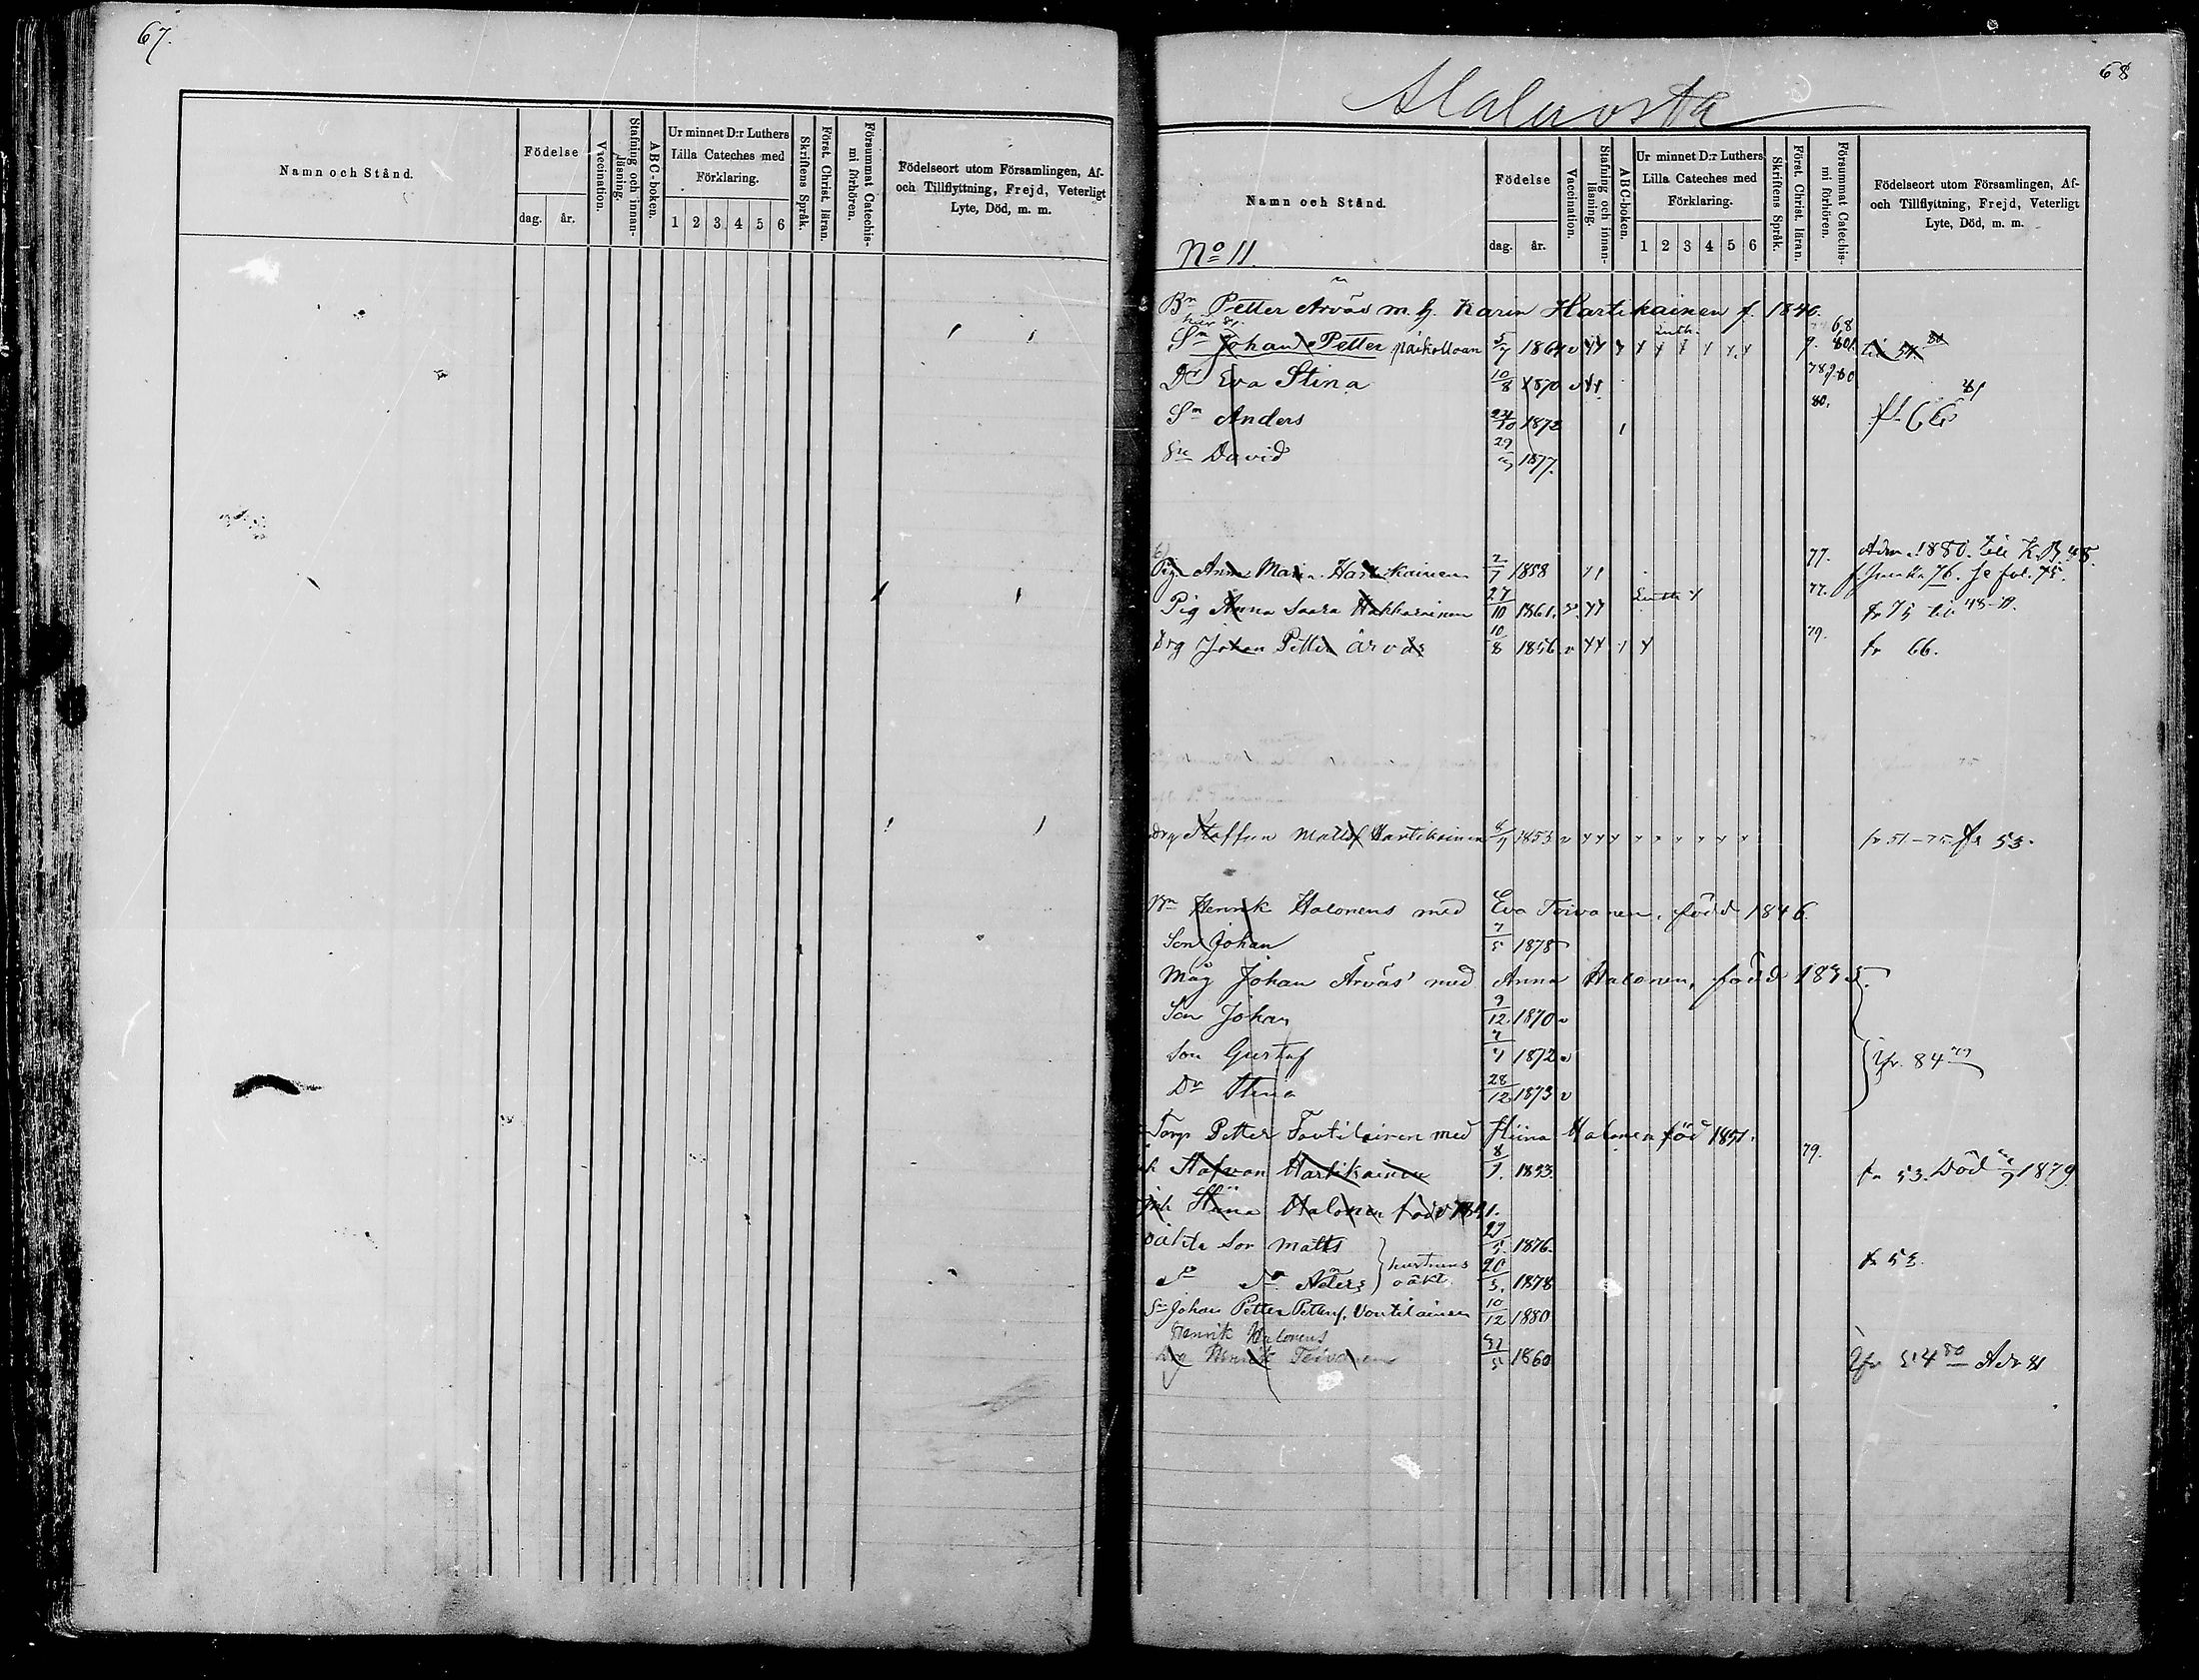 67.
Namn och Stånd.
Födelse
dag. år.
Vaccination.
Stafning och innanläsning.
ABC-boken.
Ur minnet D:r Luthers Lilla Cateches med Förklaring.
1 2 3 4 5 6
Skriftens Språk.
Först. Christ. läran.
Försummat Catechismi förhören.
Födelseort utom Församlingen, Af- och Tillflyttning, Frejd, Veterligt Lyte, Död, m. m.
68
Namn och Stånd.
No 11.
Födelse
dag. år.
Vaccination.
Stafning och innanläsning.
ABC-boken.
Ur minnet D:r Luthers Lilla Cateches med Förklaring.
1 2 3 4 5 6
Skriftens Språk.
Först. Christ. läran.
Försummat Catechismi förhören.
Födelseort utom Församlingen, Af- och Tillflyttning, Frejd, Veterligt Lyte, Död, m. m.
Bn Petter Arväs m. h. Karin Hartikainen f. 1840.
Sn Johan Petter 5/7 1864
Dr Eva Stina 10/8 1870
Sn Anders 24/10 1872 80.
Sn David 29 1877.
Pig Anna Maria Hartikainen 2/7 1858 77. 1880. K.B. 48.
Pig Anna Saara Hakkarainen 27/10 1861. 77. fr 75
Drg Johan Petter Ärväs 10/8 1856 79. fr 66.
Drg Staffan Mattsf Hartikainen 8/7 1853 fr 51-75 53.
Bn Henrik Halonens med Eva Toivanen, född 1846.
Son Johan 7/5 1878
Måg Johan Ärväs med Anna Halonen, född
Son Johan 9/12 1870
Son Gustaf 7/7 1872 84
Dr Stina 28/12 1873
Torp Petter Voutilainen med Stina Halonen född 1851.
Stafvan Hartikainen 8/7. 1853. 79. fr 53. Död 1879
Stina Halonen född
oäkta Son Matts 27/5. 1876.
hustruns oäkt.
20/5. 1878 fr 53.
Sn Johan Petter Petterf. Voutilainen 10/12 1880
Henrik Halonens
Drg Henrik Toivanen 31/5 1860